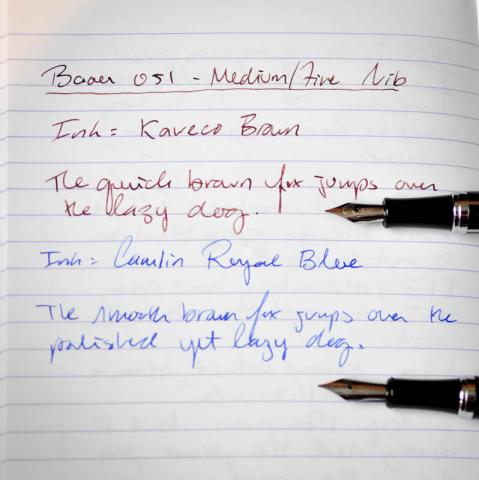 Baoer 051 - Medium/Fine Nib
Ink = Kaveco Brown
The quick brown fox jumps over
the lazy dog.
Ink = Camlin Royal Blue
The smooth brown fox jumps over the
polished yet lazy dog.